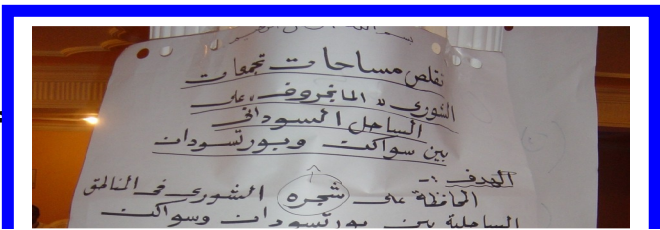 بسم الله الرحمن الرحيم
تقلص مساحات تجمعات
الشورى "المانجروف" على
الساحل السوداني
بين سواكن وبورتسودان
الهدف :-
المحافظة على شجره الشورى فى المناطق
الساحلية بين بورتسودان وسواكن